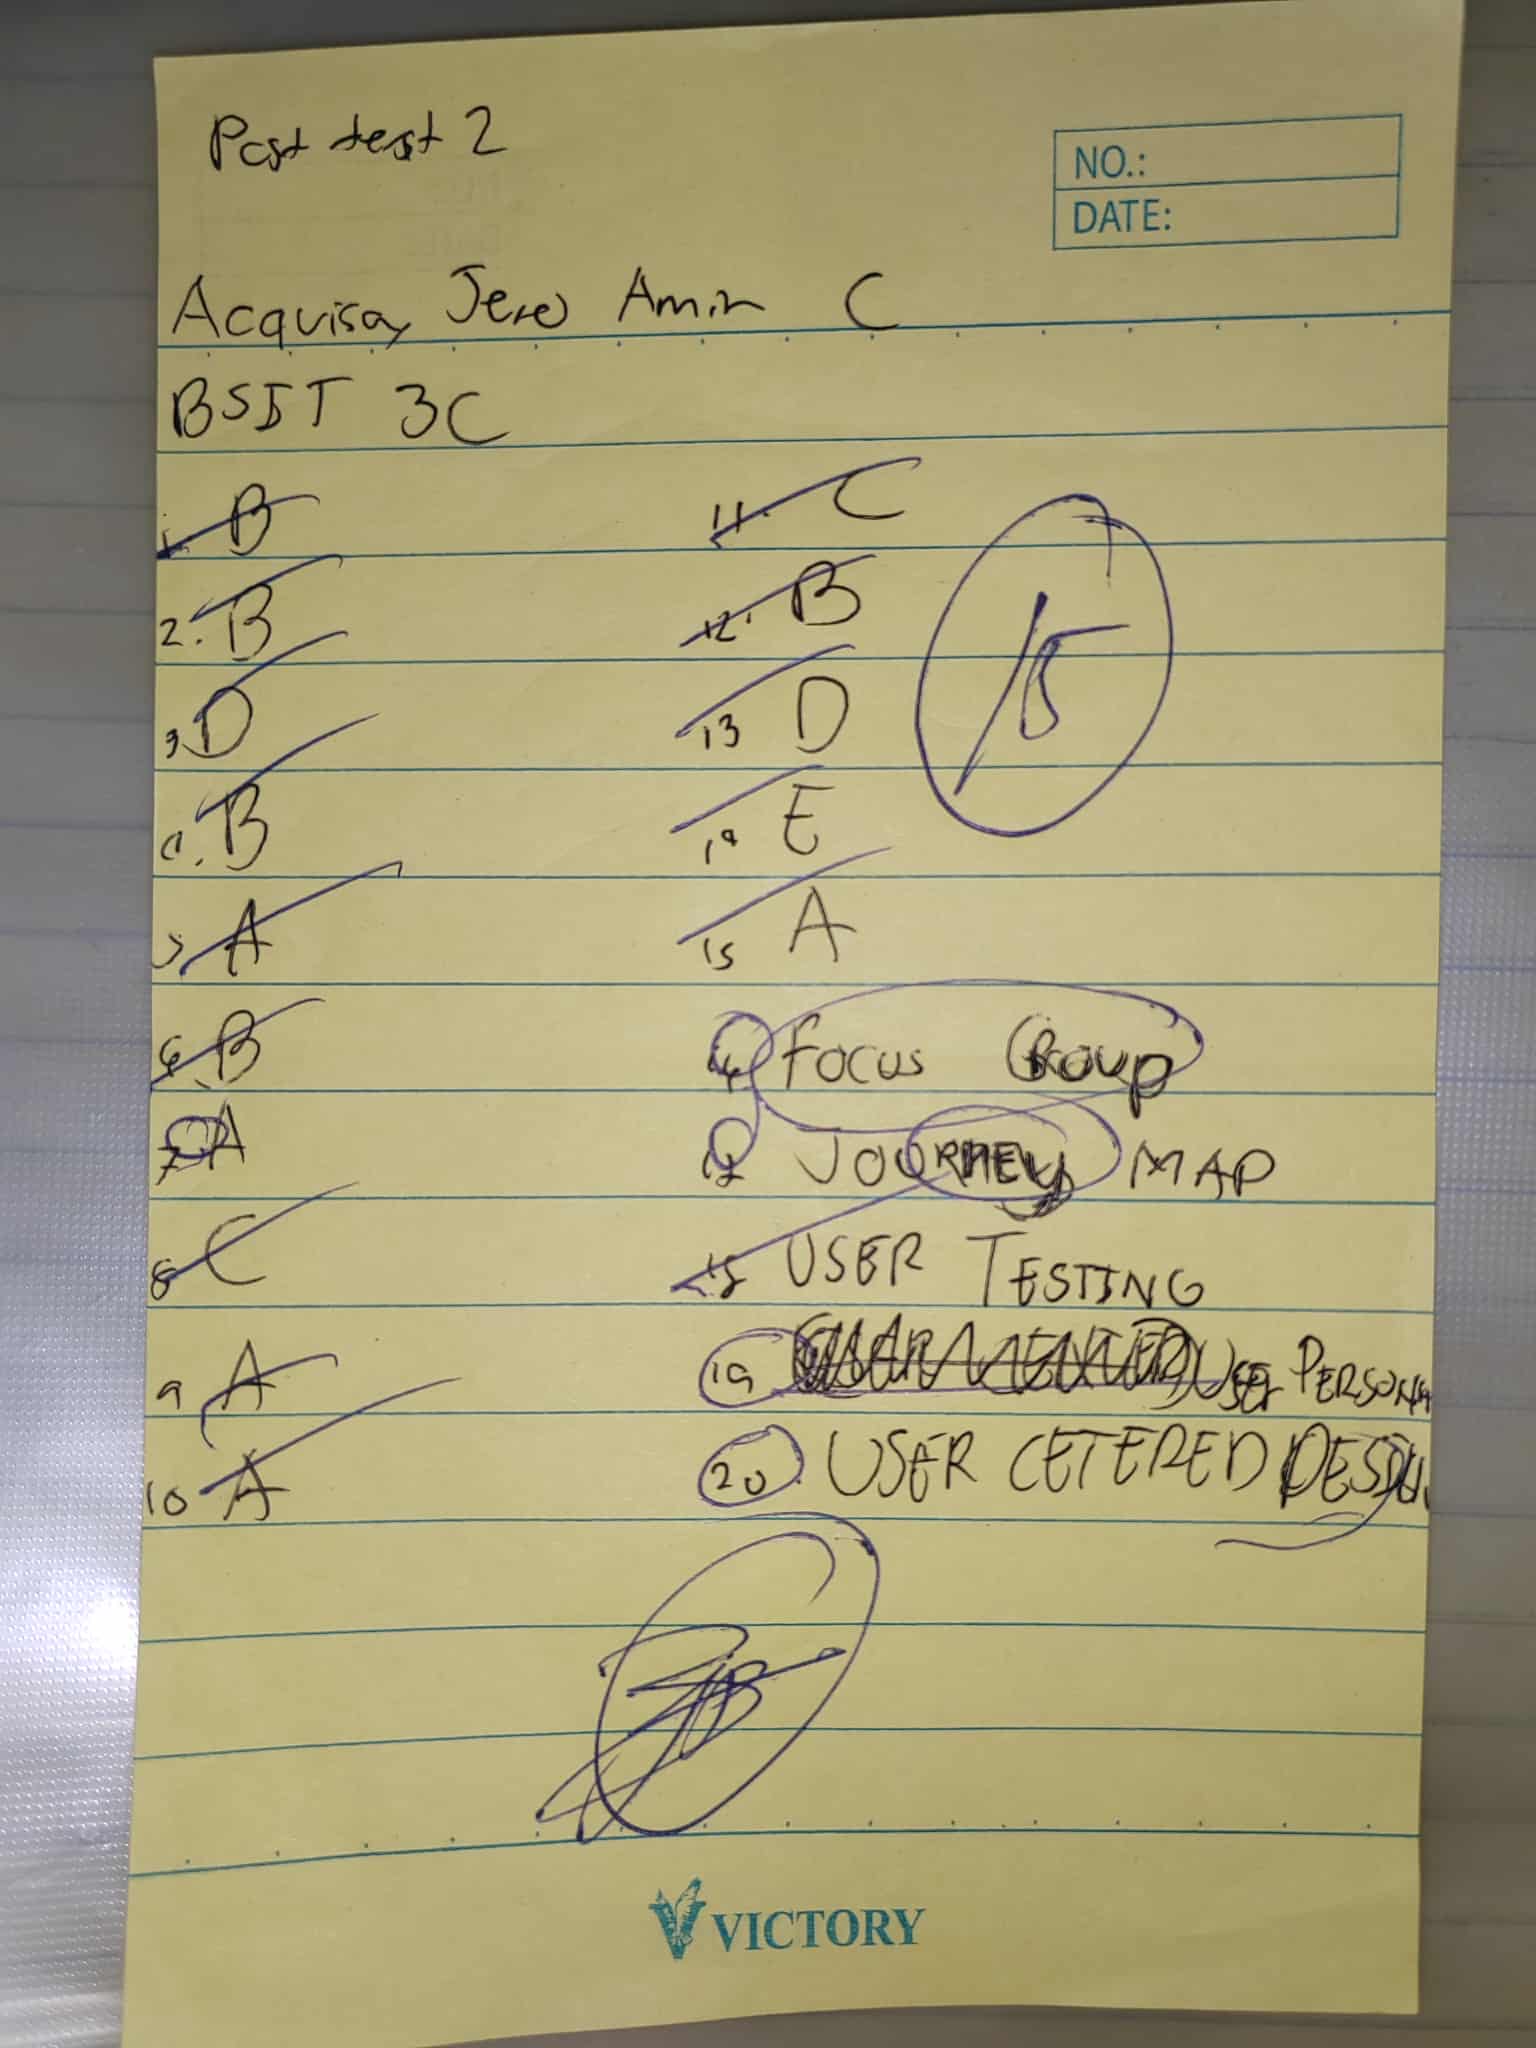 Post test 2
NO.:
DATE:
Acquisa, Jere Amin C
BSIT 3C
1. B
2. B
3. D
4. B
5 A
6. B
7 A
8 C
9 A
10 A
11. C
12. B
13 D
14 E
15 A
16 Focus Group
17 JOURNEY MAP
18 USER TESTING
19 USER PERSONA
20. USER CETERED DESIGN
15
VICTORY